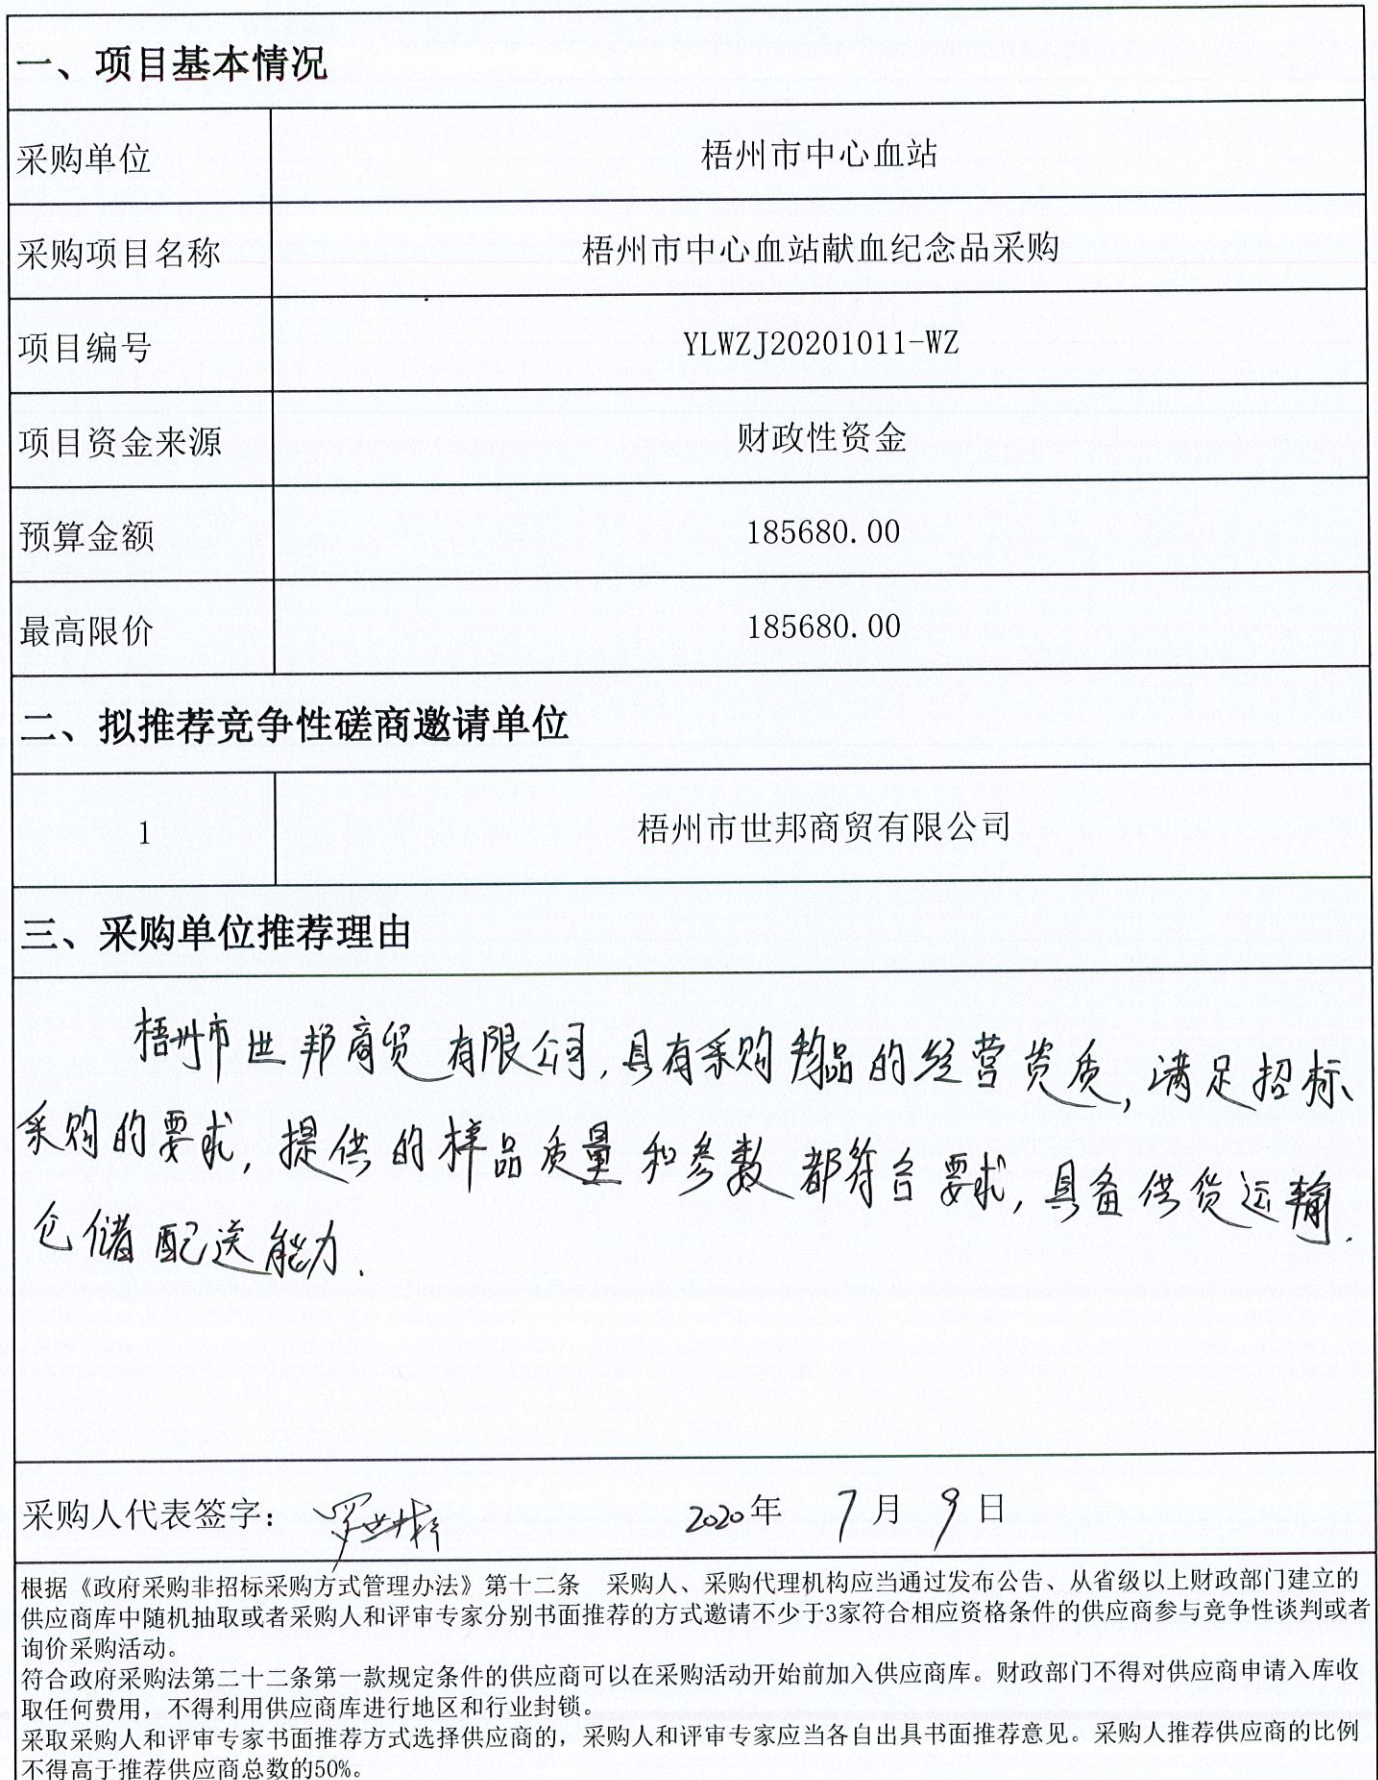 一、项目基本情况
采购单位 梧州市中心血站
采购项目名称 梧州市中心血站献血纪念品采购
项目编号 YLWZJ20201011-WZ
项目资金来源 财政性资金
预算金额 185680.00
最高限价 185680.00
二、拟推荐竞争性磋商邀请单位
1 梧州市世邦商贸有限公司
三、采购单位推荐理由
梧州市世邦商贸有限公司,具有采购物品的经营资质,满足招标
采购的要求,提供的样品质量和参数都符合要求,具备供货运输.
仓储配送能力.
采购人代表签字: 2020年 7月 9日
根据《政府采购非招标采购方式管理办法》第十二条 采购人、采购代理机构应当通过发布公告、从省级以上财政部门建立的
供应商库中随机抽取或者采购人和评审专家分别书面推荐的方式邀请不少于3家符合相应资格条件的供应商参与竞争性谈判或者
询价采购活动。
符合政府采购法第二十二条第一款规定条件的供应商可以在采购活动开始前加入供应商库。财政部门不得对供应商申请入库收
取任何费用，不得利用供应商库进行地区和行业封锁。
采取采购人和评审专家书面推荐方式选择供应商的，采购人和评审专家应当各自出具书面推荐意见。采购人推荐供应商的比例
不得高于推荐供应商总数的50%。